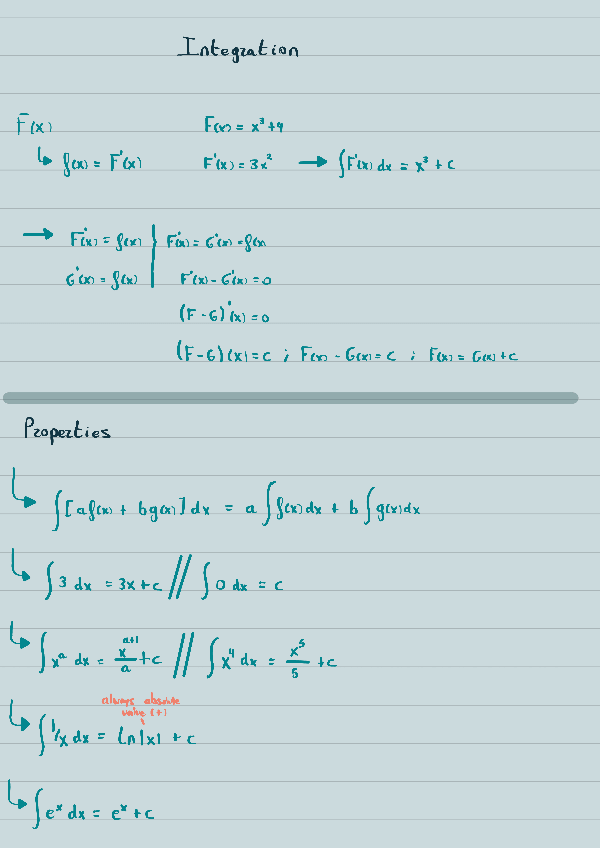 Integration
F(x) F(x) = x³+4
↳ f(x) = F'(x) F'(x) = 3x² → ∫F'(x) dx = x³ + c
→ F'(x) = f(x) | F'(x) = G'(x) = f(x)
G'(x) = f(x) | F'(x) - G'(x) = 0
(F - G)'(x) = 0
(F - G)(x) = c ; F(x) - G(x) = c ; F(x) = G(x) + c
Properties
↳ ∫[af(x) + bg(x)] dx = a∫f(x)dx + b∫g(x)dx
↳ ∫3 dx = 3x + c // ∫0 dx = c
↳ ∫xᵃ dx = xᵃ⁺¹/a + c // ∫x⁴ dx = x⁵/5 + c
always absolute
value (+)
↳ ∫1/x dx = ln|x| + c
↳ ∫eˣ dx = eˣ + c